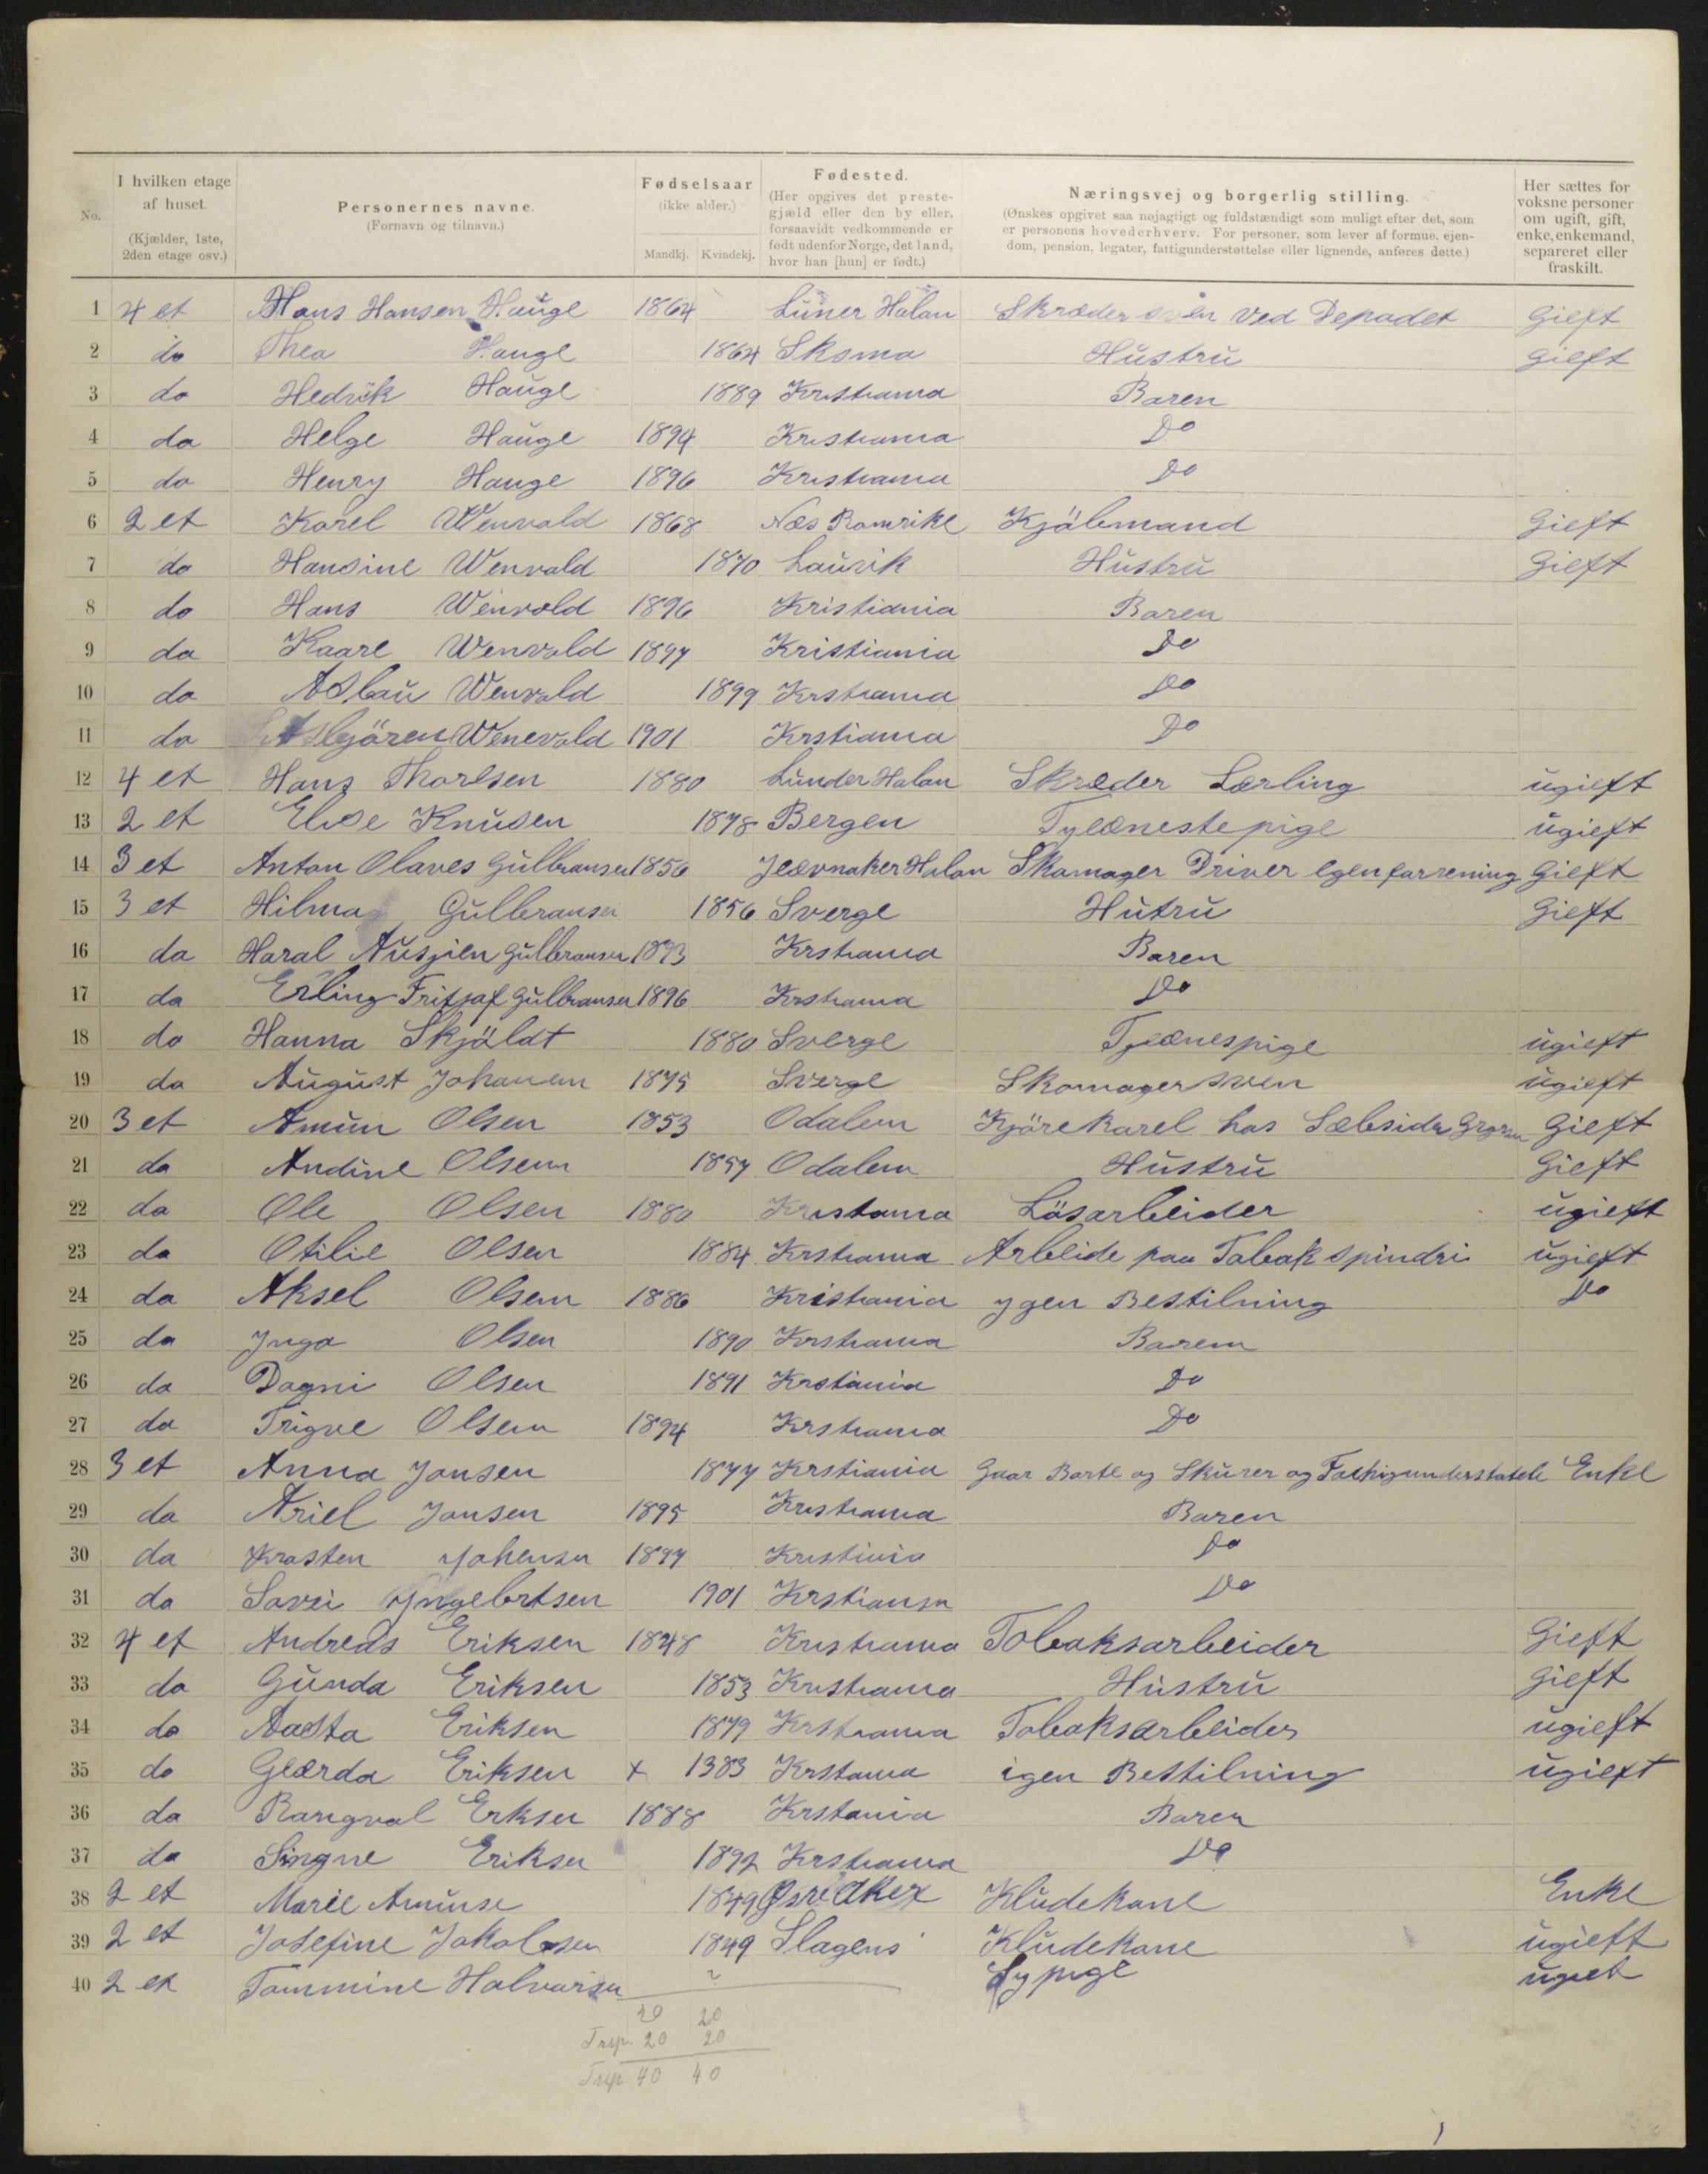 No.
I hvilken etage af huset.
(Kjælder, 1ste, 2den etage osv.)
Personernes navne.
(Fornavn og tilnavn.)
Fødselsaar
(ikke alder.)
Mandkj. Kvindekj.
Fødested.
(Her opgives det prestegjæld eller den by eller, forsaavidt vedkommende er født udenfor Norge, det land, hvor han [hun] er født.)
Næringsvej og borgerlig stilling.
(Ønskes opgivet saa nøjagtigt og fuldstændigt som muligt efter det, som er personens hovederhverv. For personer, som lever af formue, ejendom, pension, legater, fattigunderstøttelse eller lignende, anføres dette.)
Her sættes for voksne personer om ugift, gift, enke, enkemand, separeret eller fraskilt.
1 4 et Hans Hansen Hauge 1864 Luner Halan Skræder sven ved Depodet gieft
2 do Thea Hauge 1864 Skoma Hustru gieft
3 do Hedvik Hauge 1889 Kristiania Baren
4 do Helge Hauge 1894 Kristiania Do
5 do Henry Hauge 1896 Kristiania Do
6 2 et Karel Wenvald 1868 Næs Romrike Kjöbmand Gieft
7 do Hansine Wenvald 1870 Laurik Hustru Gieft
8 do Hans Wenvold 1896 Kristiania Baren
9 do Kaare Wenvold 1897 Kristiania Do
10 do Aslau Wenvald 1899 Krstiania Do
11 do Asbjören Wenevold 1901 Krstiania Do
12 4 et Hans Thorlsen 1880 Lunder Halan Skræder Lærling ugieft
13 2 et Elise Knusen 1878 Bergen Tyeænestepige ugieft
14 3 et Anton Olaves Gulbransen 1856 Jeævnaker Halan Skomager Driver egen farrening gieft
15 3 et Hilma Gulbransen 1856 Sverge Hutru gieft
16 da Haral Ausjien Gulbransen 1893 Krstiania Baren
17 da Erling Fritjaf Gulbransen 1896 Krstiania Do
18 do Hanna Skjöldt 1880 Sverge Tjeænespige ugieft
19 da August Johansen 1875 Sverge Skomager sven ugieft
20 3 et Amun Olsen 1853 Odalem Kjörekarel hos Gieft
21 da Andine Olsen 1857 Odalem Hustru Gieft
22 da Ole Olsen 1880 Kristania Lösarbeider ugieft
23 da Otilie Olsen 1884 Krstiania Arbeide paa Tabak spindri ugieft
24 da Aksel Olsen 1886 Kristiania ygen Bestilning Do
25 da Ynga Olsen 1890 Krstiania Baren
26 da Dagni Olsen 1891 Krstiania Do
27 da Trigve Olsen 1894 Krstiania Do
28 3 et Anna Jonsen 1877 Krstiania Gaar Borte og Skurer og Enke
29 da Ariel Jonsen 1895 Kristiania Baren
30 da Krasten Johensen 1897 Kristinia Do
31 da Yngebrtsen 1901 Krstiania Do
32 4 et Andreas Eriksen 1848 Kristiania Tobaksarbeider Gieft
33 da Gunda Eriksen 1853 Kristiania Hustru gieft
34 do Aasta Eriksen 1879 Krstiania Tobaksarbeider ugieft
35 do Geærda Eriksen x 1383 Krstania igen Bestilning ugieft
36 da Rangval Erksen 1888 Krstania Baren
37 da Singne Eriksen 1892 Krstiania Do
38 2 et Marie Amunse 1849 Øsre Aker Kludekone Enke
39 2 et Josefine Jakobsen 1849 Slagens Kludekone ugieft
40 2 et Tommine Halvorsen ~ Sypige ugiet
20 20
Trsp. 20 20
Trsp 40 40